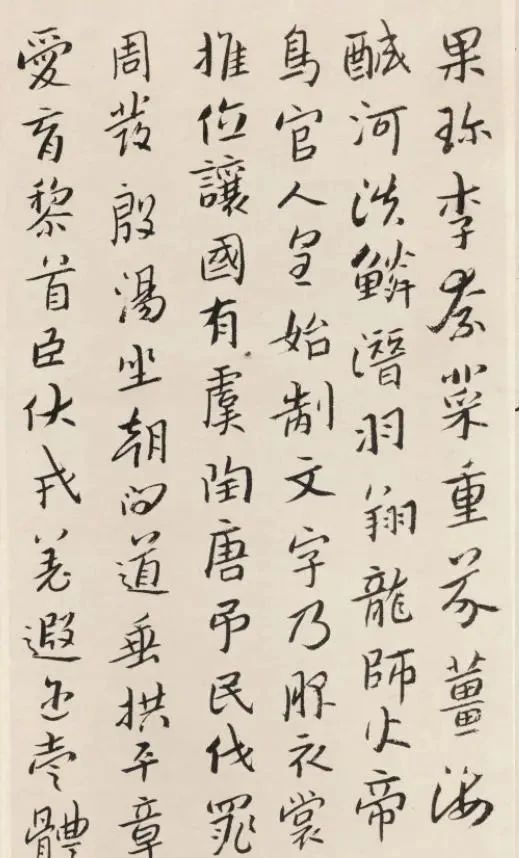 果珍李柰菜重芥薑海
醎河淡鱗潛羽翔龍師火帝
鳥官人皇始制文字乃服衣裳
推位讓國有虞陶唐弔民伐罪
周發殷湯坐朝問道垂拱平章
愛育黎首臣伏戎羌遐迩壹體